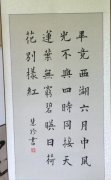 畢竟西湖六月中風
光不與四時同接天
蓮葉無窮碧映日荷
花別樣紅